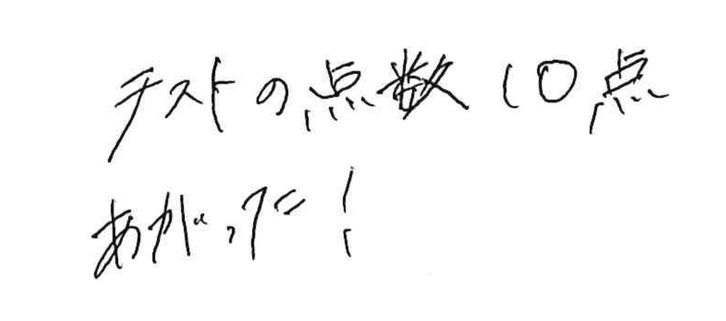 テストの点数10点
あがった!